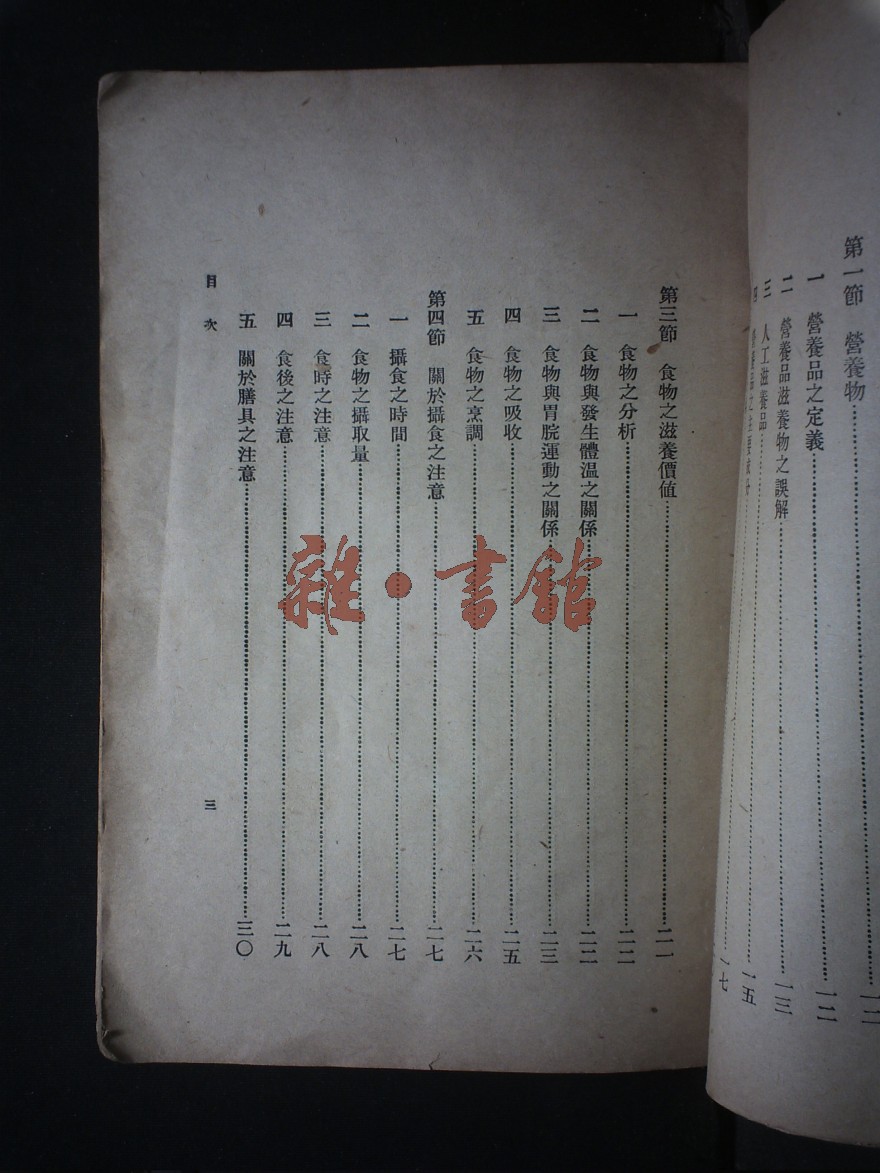 第一節　營養物……一二
一　營養品之定義……一二
二　營養品滋養物之誤解……一三
三　人工滋養品……一五
一七
第三節　食物之滋養價值……二一
一　食物之分析……二二
二　食物與發生體溫之關係……二二
三　食物與胃脘運動之關係……二三
四　食物之吸收……二五
五　食物之烹調……二六
第四節　關於攝食之注意……二七
一　攝食之時間……二七
二　食物之攝取量……二八
三　食時之注意……二八
四　食後之注意……二九
五　關於膳具之注意……三〇
目次　三
雜·書館